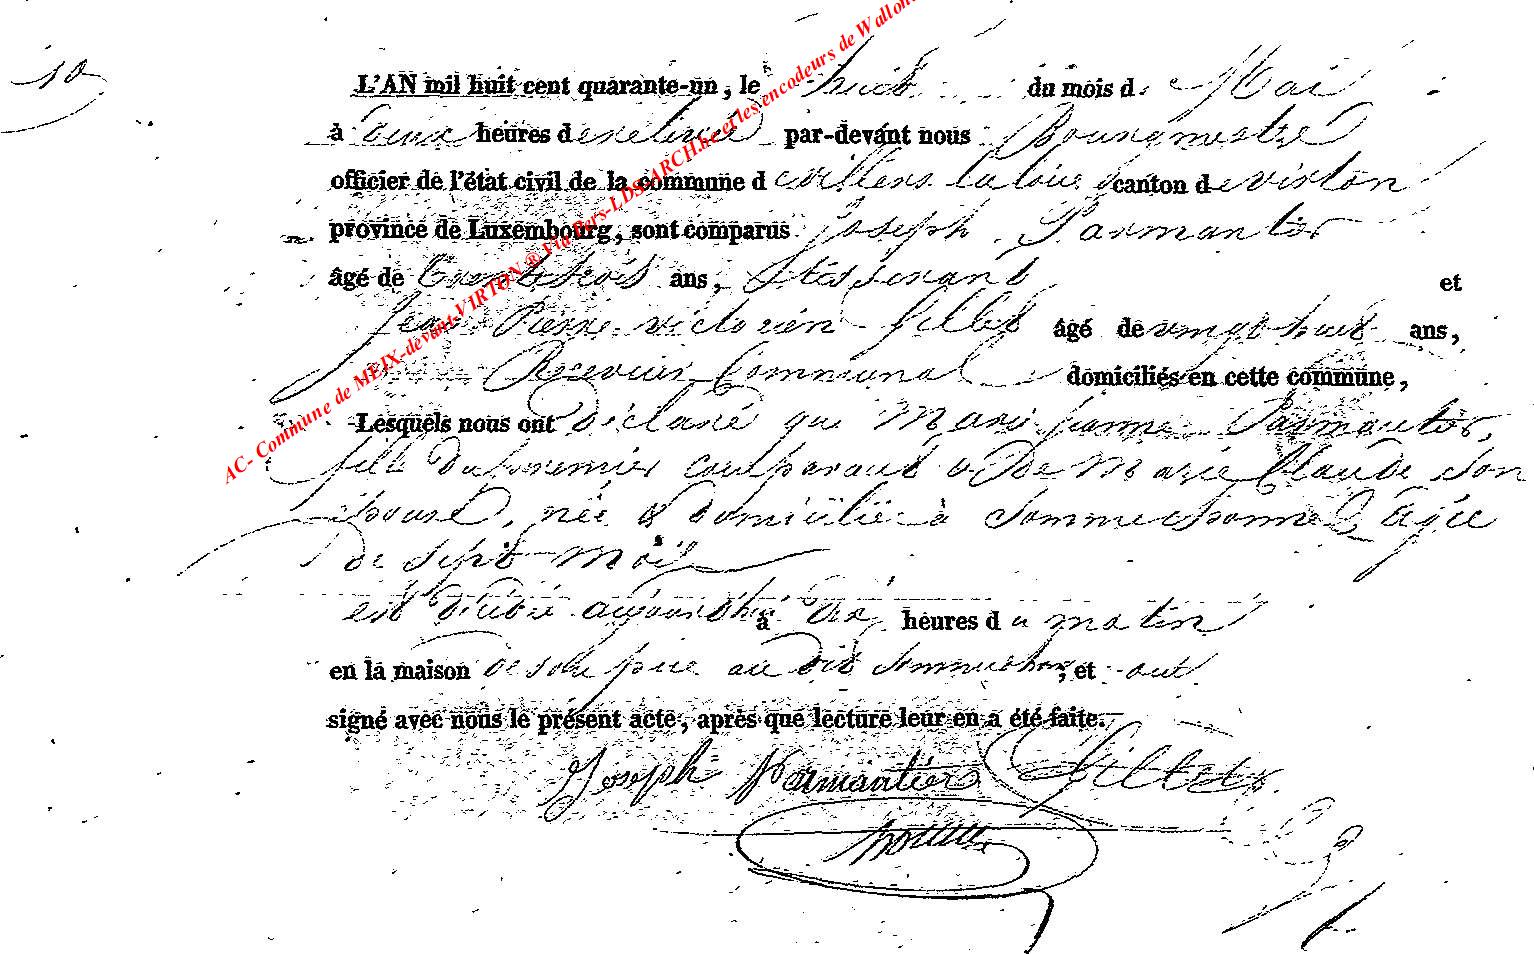 10
L'AN mil huit cent quarante-un, le huit du mois de Mai
à deux heures de relevée par-devant nous Bourgmestre
officier de l'état civil de la commune de Villers la loue canton de virton
province de Luxembourg, sont comparus Joseph Parmantier
âgé de trente trois ans, et
Jean Pierre victorien Gillet âgé de vingt huit ans,
Receveur Communal domiciliés en cette commune,
Lesquels nous ont déclaré que Marie Jeanne Parmantier,
fille du premier comparant & de Marie Claude son
épouse, née & domiciliée à Sommethonne âgée
de sept mois
est décédée aujourd'hui à dix heures du matin
en la maison de son père au dit Sommethonne, et ont
signé avec nous le présent acte, après que lecture leur en a été faite.
Joseph Parmantier Gillet
AC- Commune de MEIX-devant-VIRTON ® Via Pers-LDS-ARCH.be et les encodeurs de Wallon